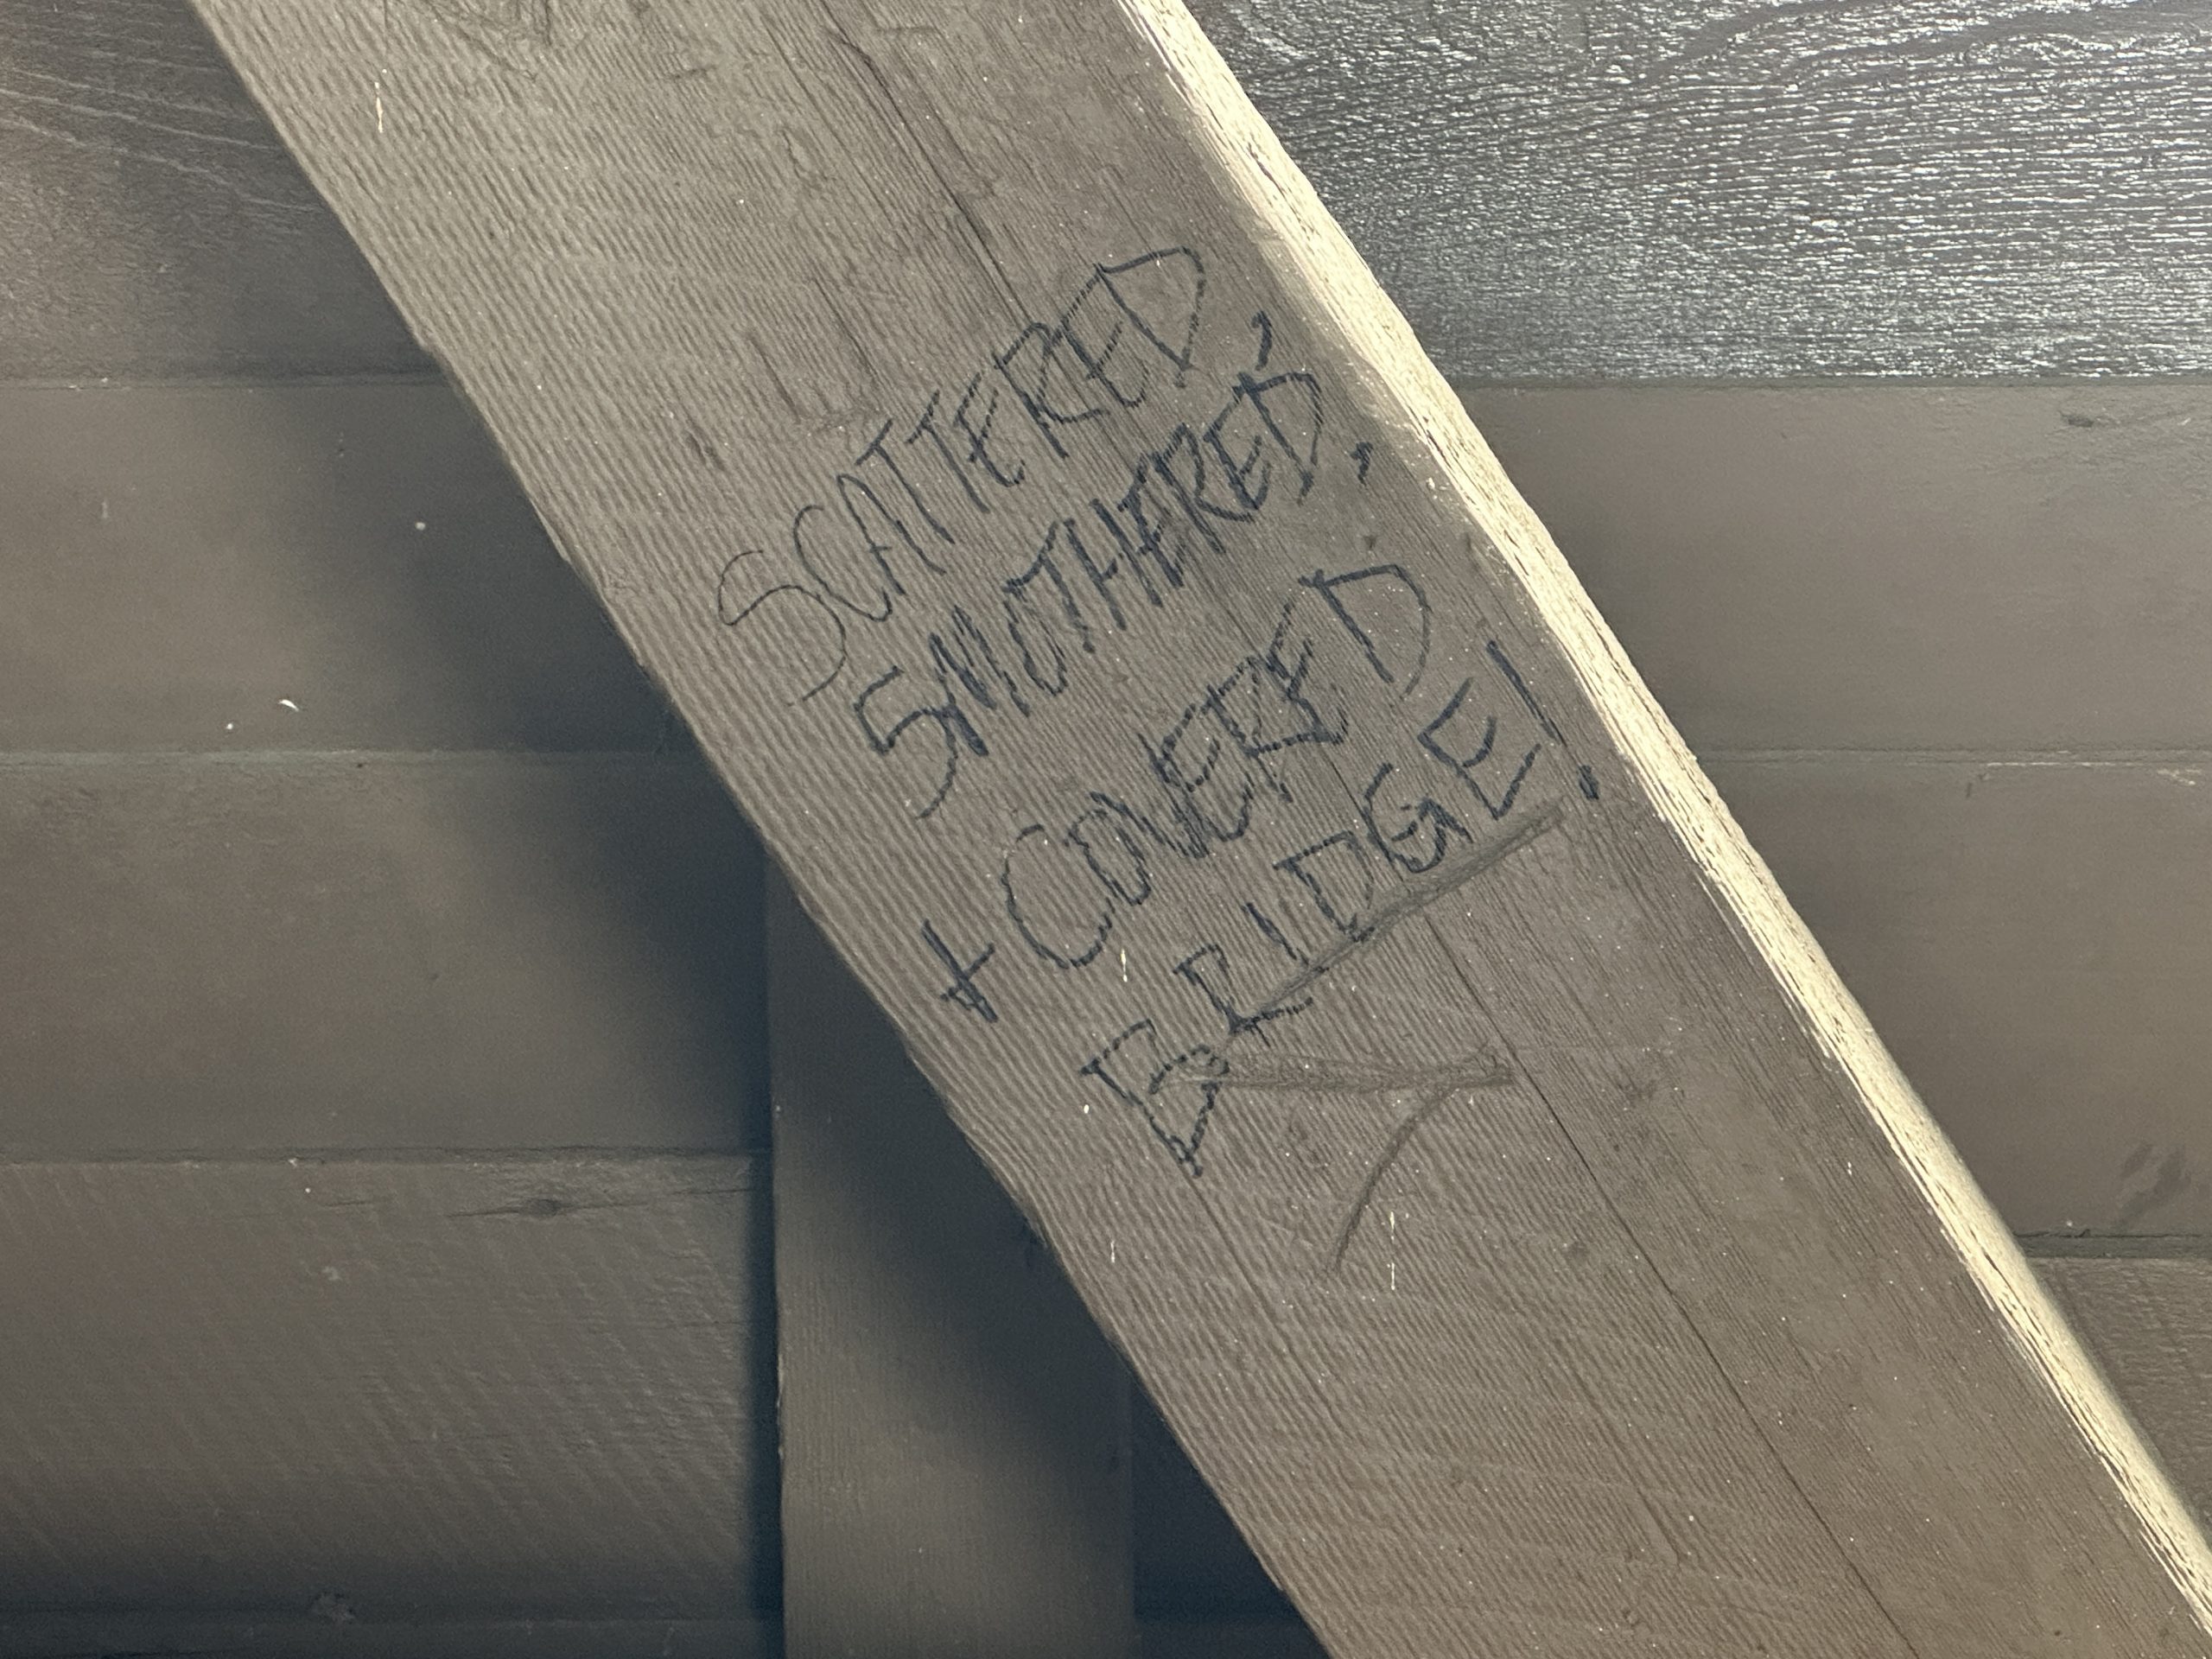 SCATTERED,
SMOTHERED,
+ COVERED
BRIDGE!